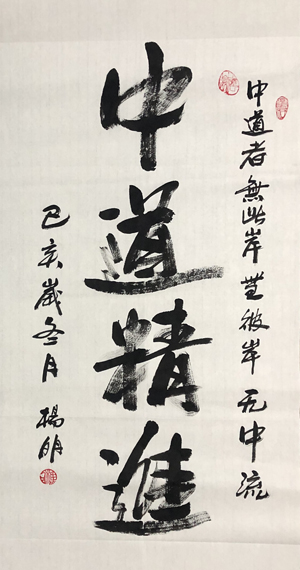 中道者無此岸無彼岸无中流
中道精進
己亥歲冬月 楊明